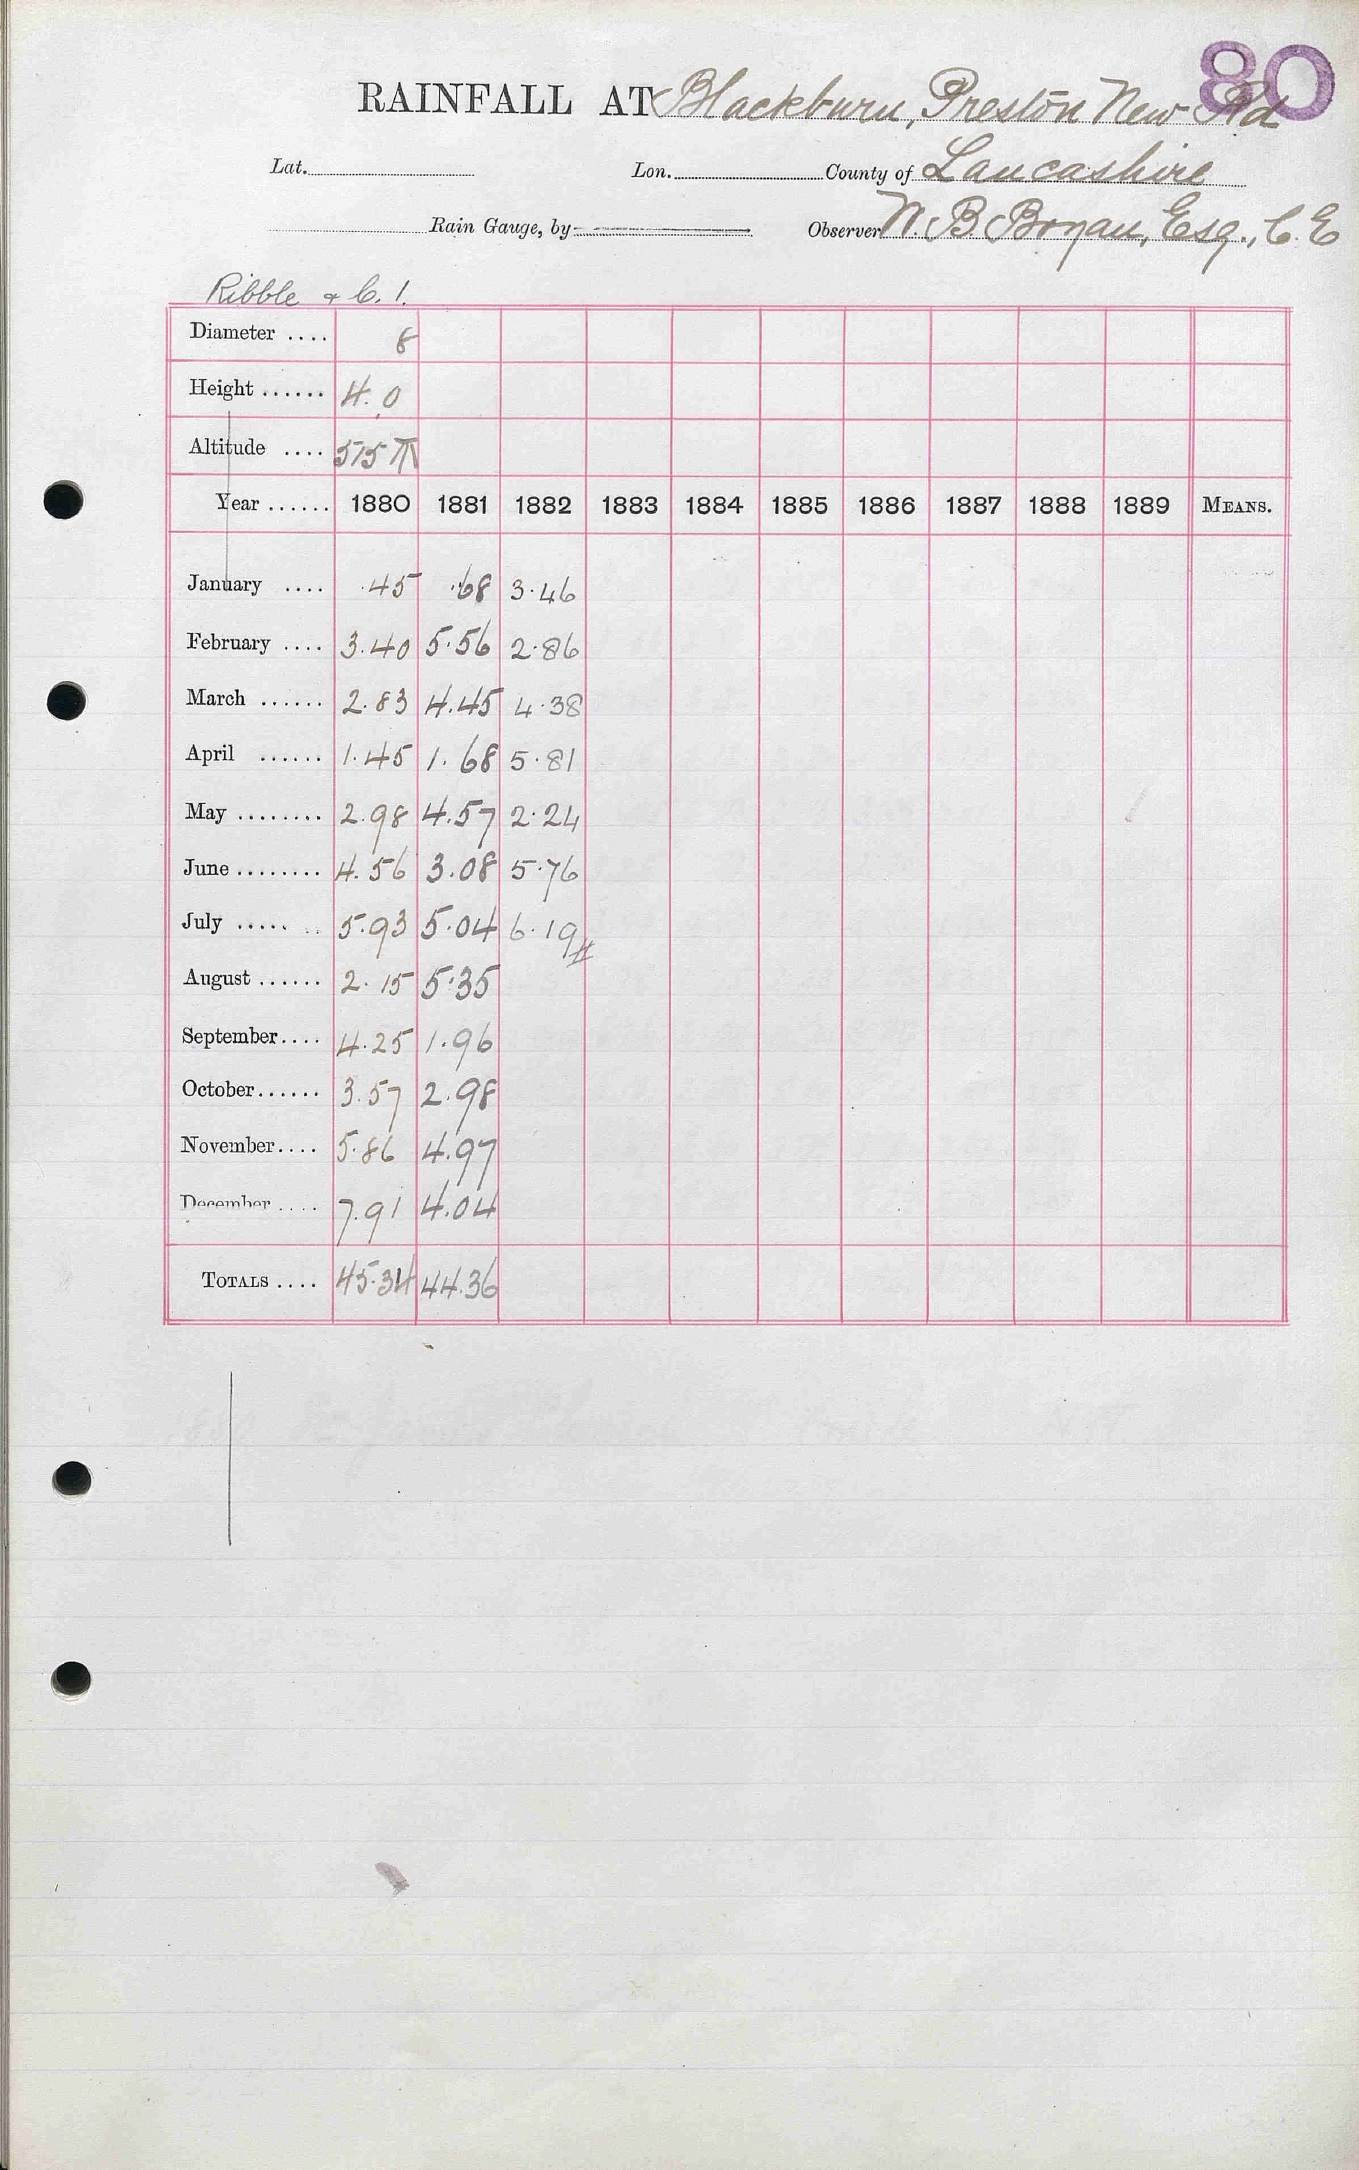 80
RAINFALL AT Blackburn, Preston New Rd
Lat. Lon. County of Lancashire
Rain Gauge, by Observer W. B Bryan, Esq., C.E
Ribble & C. 1.
Diameter .... 8
Height ...... 4.0
Altitude .... 515 T
Year ...... 1880 1881 1882 1883 1884 1885 1886 1887 1888 1889 MEANS.
January .... .45 .68 3.46
February .... 3.40 5.56 2.86
March ...... 2.83 4.45 4.38
April ...... 1.45 1.68 5.81
May ........ 2.98 4.57 2.24
June ........ 4.56 3.08 5.76
July ..... .. 5.93 5.04 6.19
August ...... 2.15 5.35
September.... 4.25 1.96
October...... 3.57 2.98
November.... 5.86 4.97
December .... 7.91 4.04
TOTALS .... 45.34 44.36